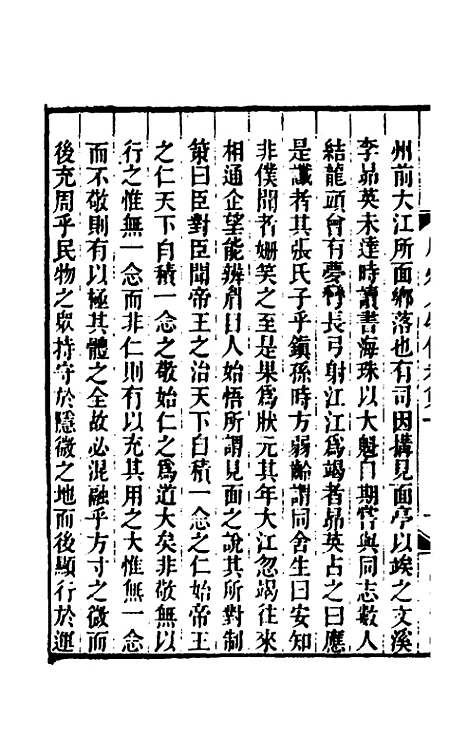 州前大江所面鄉落也有司因搆見面亭以竢之文溪
李昴英未達時讀書海珠以大魁自期嘗與同志數人
結龍頭會有夢彎長弓射江江爲竭者昴英占之曰應
是讖者其張氏子乎鎮孫時方弱齡謂同舍生曰安知
非僕聞者姍笑之至是果爲狀元其年大江忽竭往來
相通企望能辨眉目人始悟所謂見面之說其所對制
策曰臣對臣聞帝王之治天下自積一念之仁始帝王
之仁天下自積一念之敬始仁之爲道大矣非敬無以
行之惟無一念而非仁則有以充其用之大惟無一念
而不敬則有以極其體之全故必混融乎方寸之微而
後充周乎民物之眾持守於隱微之地而後顯行於運